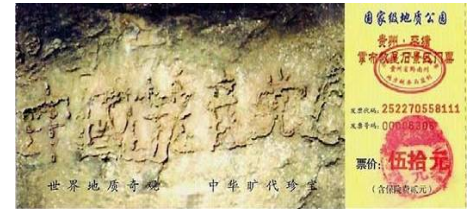 中國共产党亡
世界地质奇观 中华旷代珍宝
国家级地质公园
贵州·平塘
掌布藏字石景区门票
发票代码: 252270558111
发票号码: 00006306
票价: 伍拾元
(含保险费贰元)